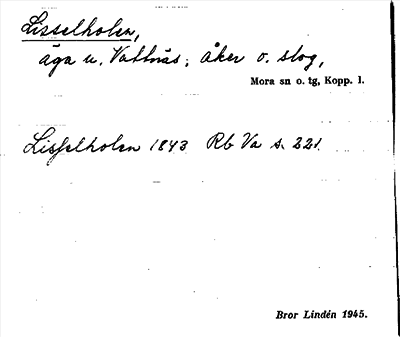 Lisselholen,
äga u. Vattnäs; åker o. slog,
Mora sn o. tg, Kopp. l.
Lisselholen 1843 Rb Va s. 221.
Bror Lindén 1945.